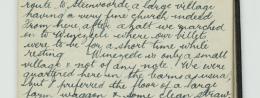 route to Steenvoorde a large village
having a very fine church - indeed
from here after a halt we marched
on to Winezeele where our billet
were to be for a short time while
resting Winezeele is only a small
village & not of any note. We were
quartered here in the barns as usual,
but I preferred the floor of a large
farm waggon & some clean straw